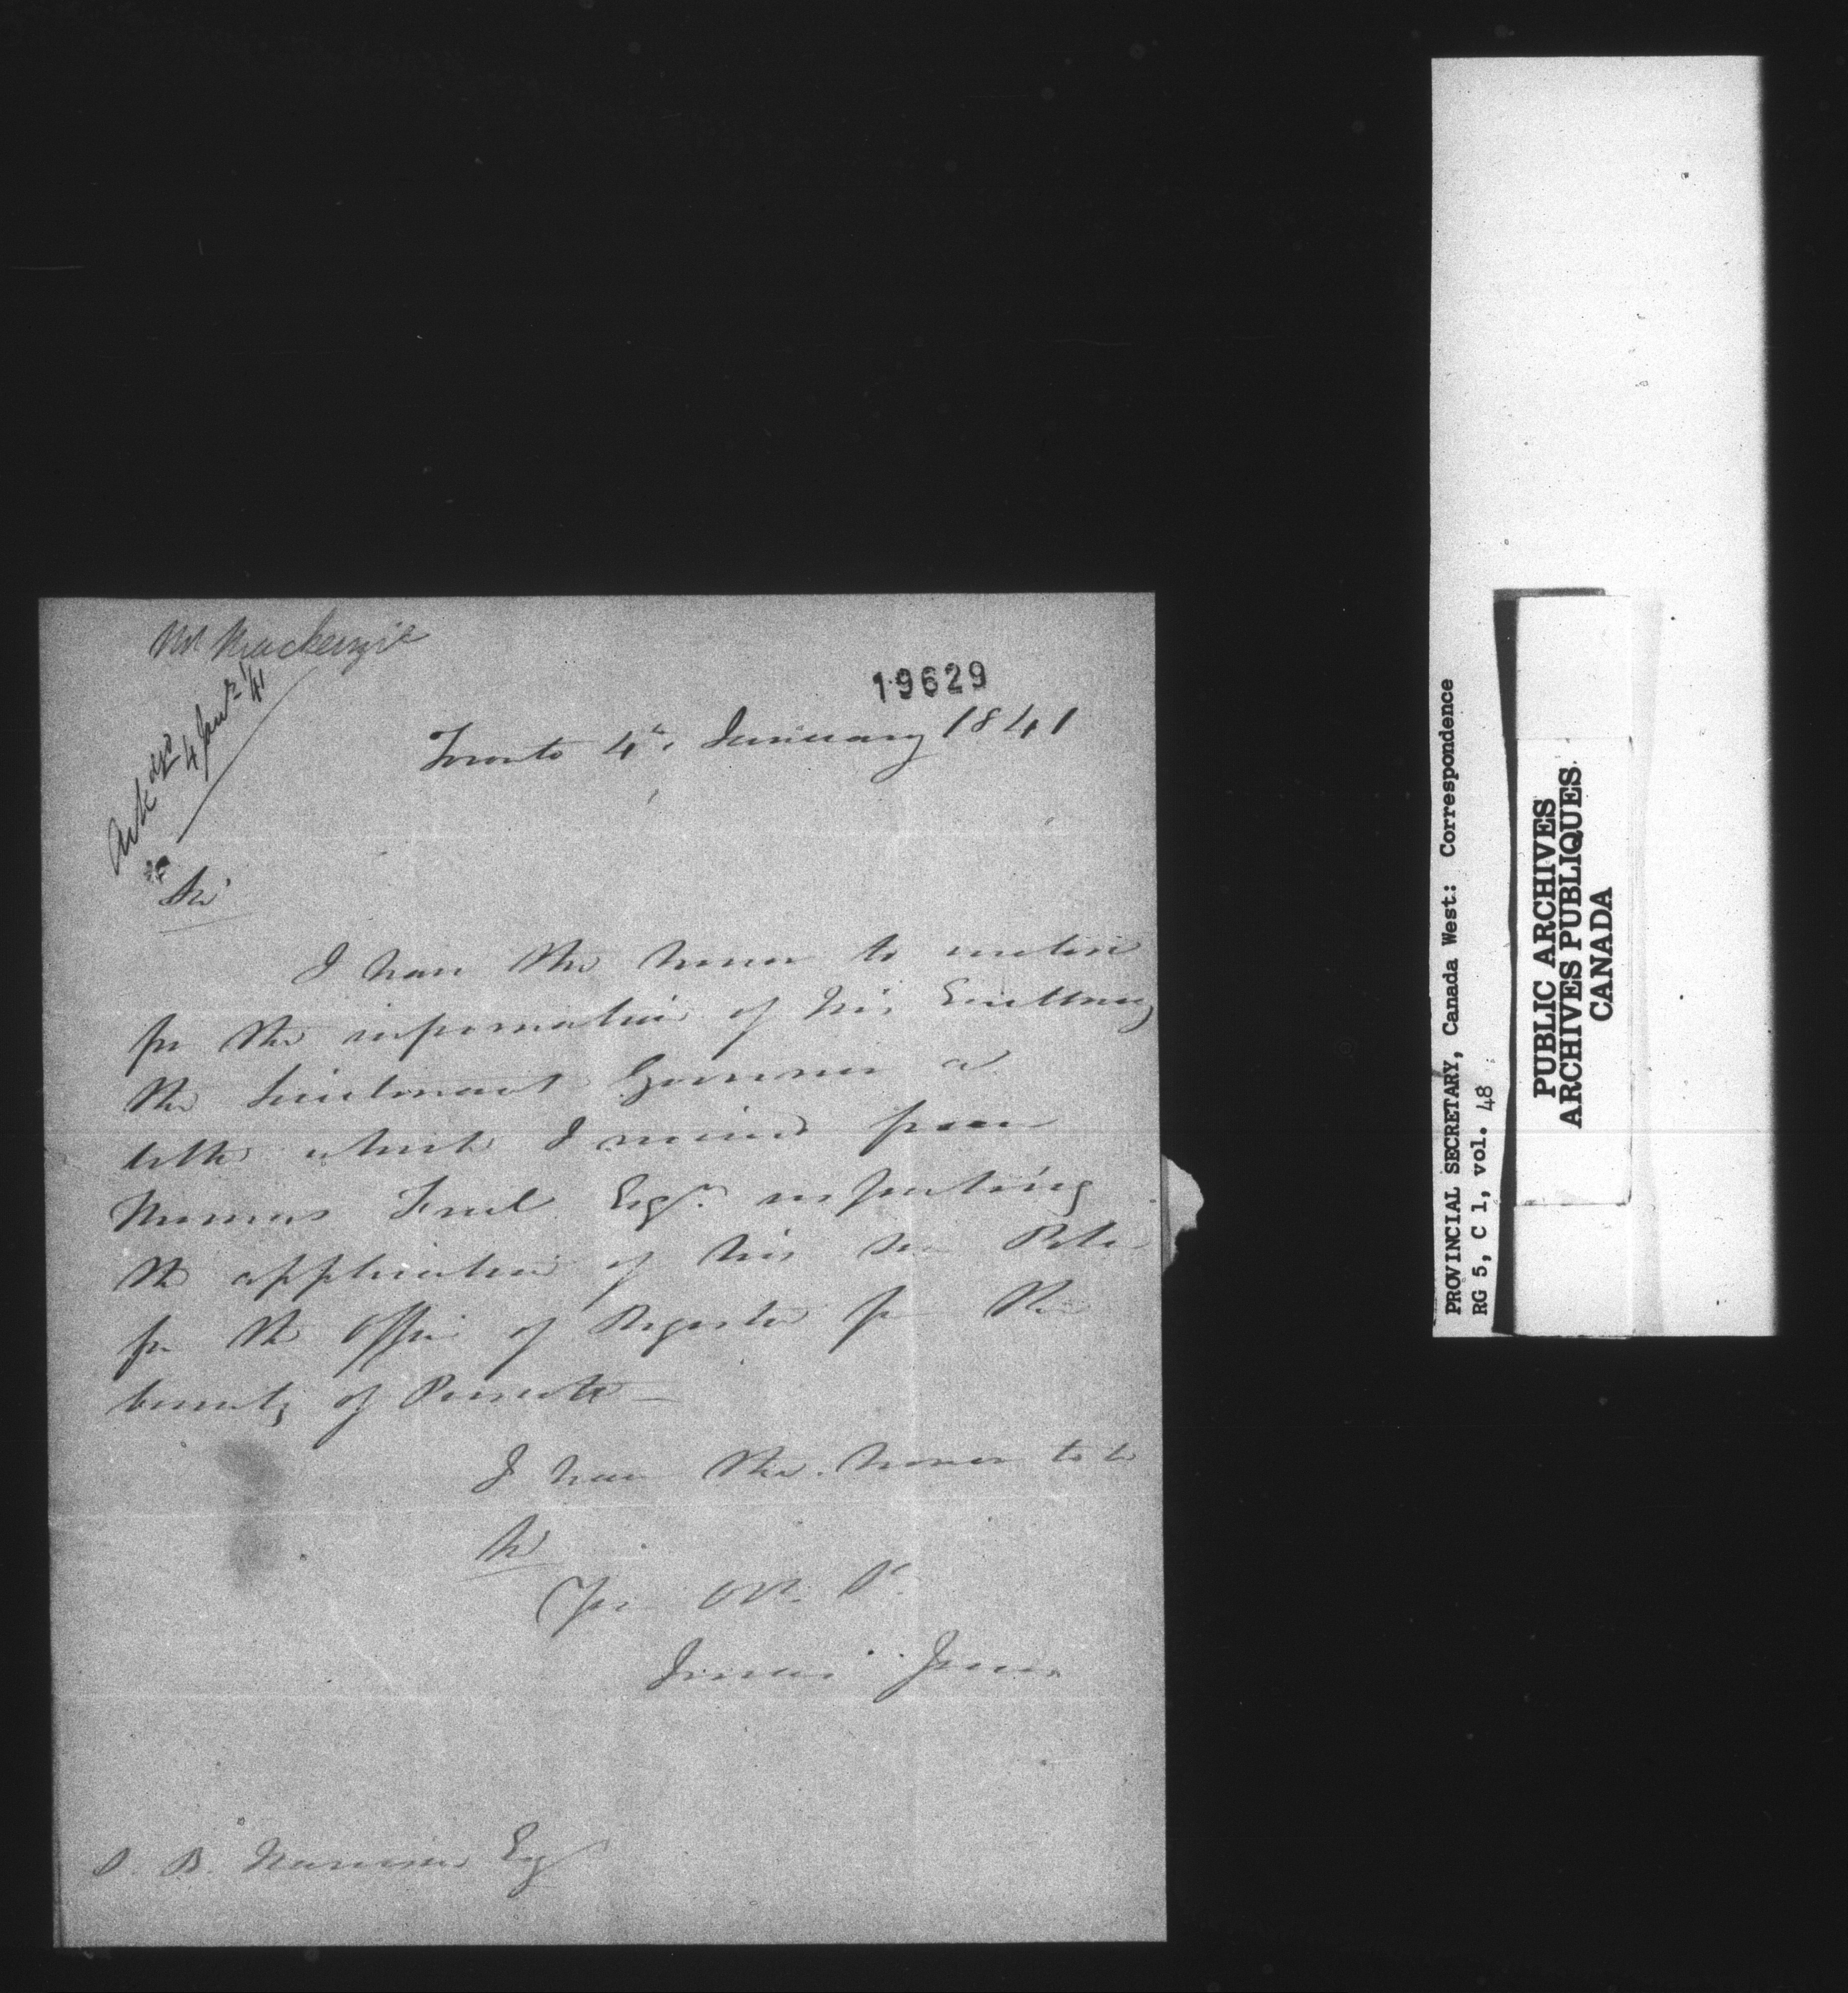 Mr Mackenzie
4 Jany /41
19629
Toronto 4th January 1841
Sir
I have the honor to enclose
for the information of His Excellency
the Lieutenant Governor a
letter which I received from
Thomas Esqr. respecting
the application of his son Peter
for the Office of Register for the
County of Prescott —
I have the honor to be
Sir
Your Ob. St.
Jonas Jones
S. B. Harrison Esq
PROVINCIAL SECRETARY, Canada West: Correspondence
RG 5, C 1, vol. 48
PUBLIC ARCHIVES
ARCHIVES PUBLIQUES
CANADA